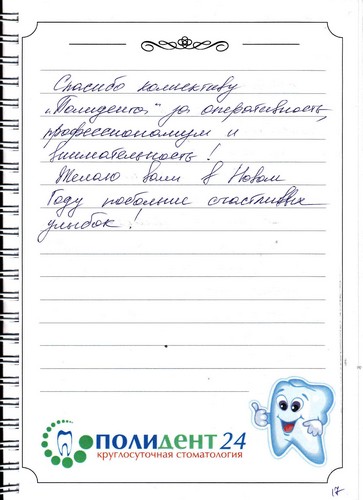 Спасибо коллективу
"Полидента" за оперативность,
профессионализм и
внимательность!
Желаю вам в Новом
Году побольше счастливых
улыбок!
ПОЛИДЕНТ 24
круглосуточная стоматология
17